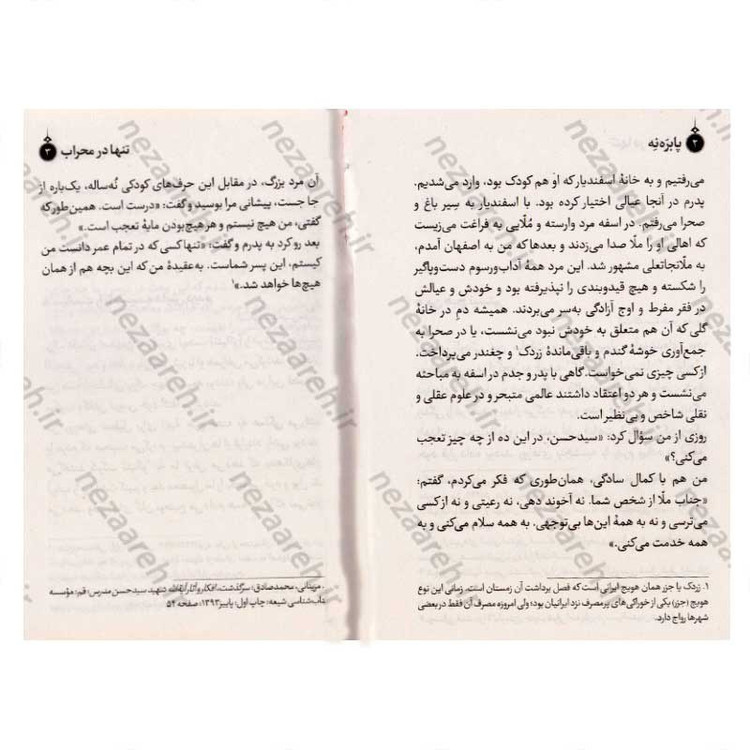 ۲ پابرَه‌نِه
می‌رفتیم و به خانهٔ اسفندیار که او هم کودک بود، وارد می‌شدیم.
پدرم در آنجا عیالی اختیار کرده بود. با اسفندیار به سِیر باغ و
صحرا می‌رفتم. در اسفه مرد وارسته و مُلّایی به فراغت می‌زیست
که اهالی او را ملّا صدا می‌زدند و بعدها که من به اصفهان آمدم،
به ملّانجاتعلی مشهور شد. این مرد همهٔ آداب‌ورسوم دست‌وپاگیر
را شکسته و هیچ قیدوبندی را نپذیرفته بود و خودش و عیالش
در فقر مفرط و اوج آزادگی به‌سر می‌بردند. همیشه دمِ در خانهٔ
گلی که آن هم متعلق به خودش نبود می‌نشست، یا در صحرا به
جمع‌آوری خوشهٔ گندم و باقی‌ماندهٔ زردک۱ و چغندر می‌پرداخت.
از کسی چیزی نمی‌خواست. گاهی با پدر و جدم در اسفه به مباحثه
می‌نشست و هر دو اعتقاد داشتند عالمی متبحر و در علوم عقلی و
نقلی شاخص و بی‌نظیر است.
روزی از من سؤال کرد: «سیدحسن، در این ده از چه چیز تعجب
می‌کنی؟»
من هم با کمال سادگی، همان‌طوری که فکر می‌کردم، گفتم:
«جناب ملّا از شخص شما. نه آخوند دهی، نه رعیتی و نه از کسی
می‌ترسی و نه به همهٔ این‌ها بی‌توجهی. به همه سلام می‌کنی و به
همه خدمت می‌کنی.»
۱. زردک یا جزر همان هویج ایرانی است که فصل برداشت آن زمستان است. زمانی این نوع
هویج (جزر) یکی از خوراکی‌های پرمصرف نزد ایرانیان بود؛ ولی امروزه مصرف آن فقط در بعضی
شهرها رواج دارد.
تنها در محراب ۳
آن مرد بزرگ، در مقابل این حرف‌های کودکی نُه‌ساله، یک‌باره از
جا جست، پیشانی مرا بوسید و گفت: «درست است. همین‌طور که
گفتی، من هیچ نیستم و هر هیچ‌بودن مایهٔ تعجب است.»
بعد رو کرد به پدرم و گفت: «تنها کسی که در تمام عمر دانست من
کیستم، این پسر شماست. به‌عقیدهٔ من که این بچه هم از همان
هیچ‌ها خواهد شد.»۱
محمدصادق؛ سرگذشت، افکار و آثار شهید سیدحسن مدرس؛ قم: مؤسسه
شیعه؛ چاپ اول: پاییز۱۳۹۳؛ صفحه ۵۲
nezaareh.ir